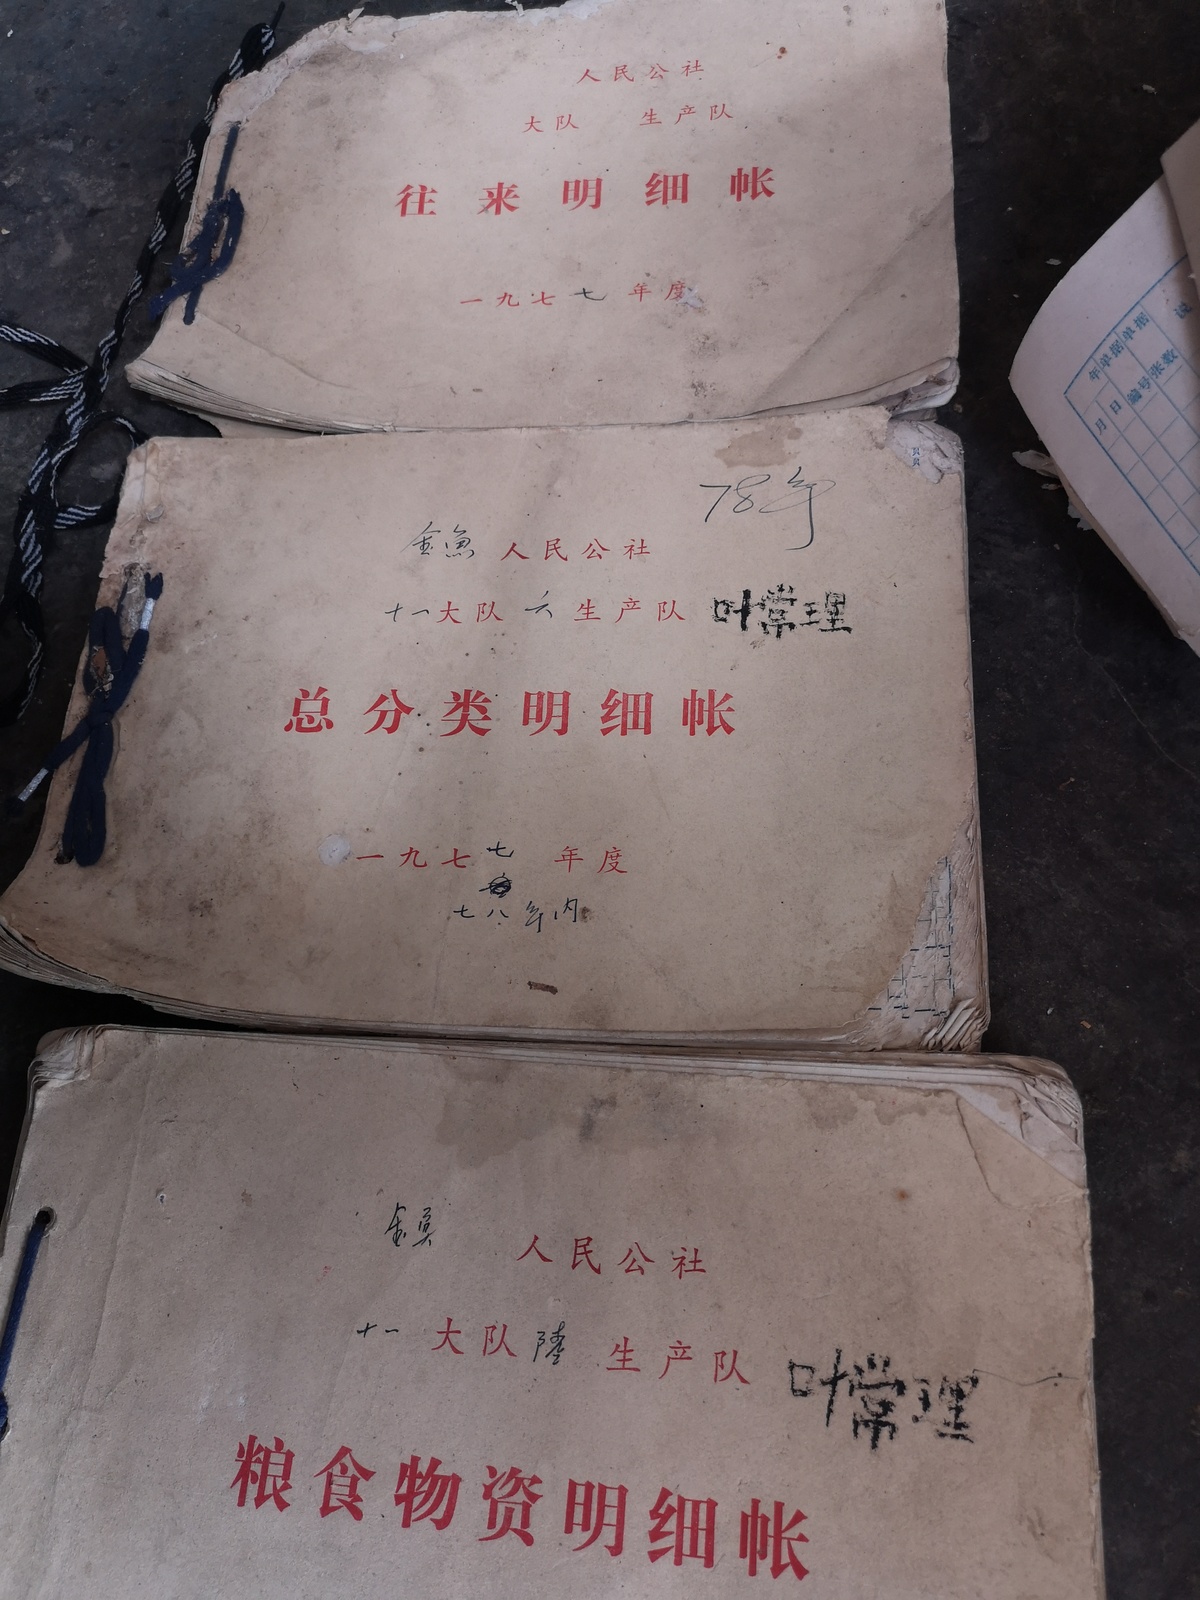 人民公社
大队 生产队
往来明细帐
一九七七年度
年 单据 单据 说
月 日 编号 张数
78年
金渔人民公社
十一大队六生产队 叶常理
总分类明细帐
一九七七年度
七八年内
人民公社
十一大队陸生产队 叶常理
粮食物资明细帐